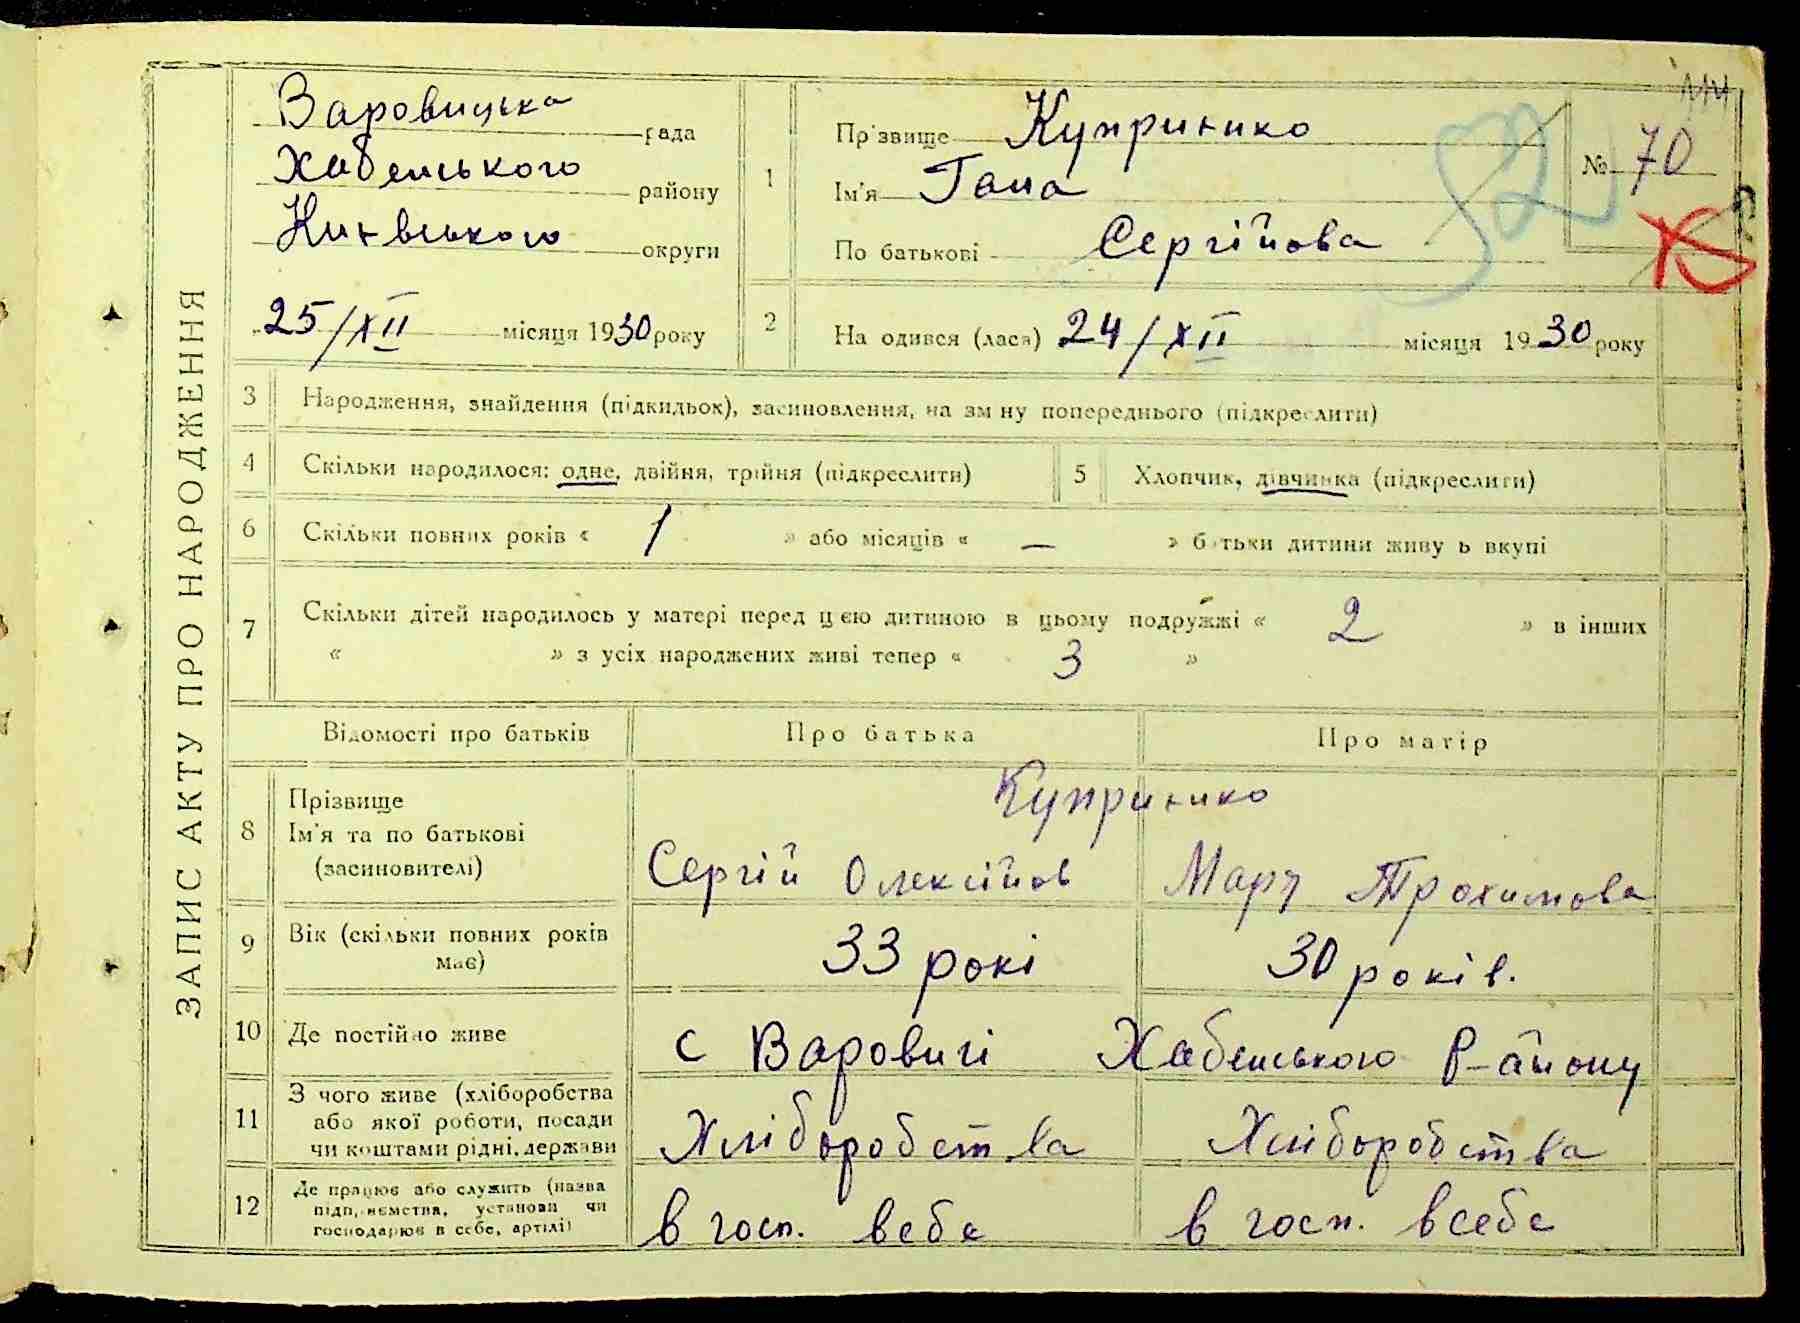 ЗАПИС АКТУ ПРО НАРОДЖЕННЯ
Варовицька рада
Хабенського району
Київського округи
25/XII місяця 1930 року
1 Прізвище Куприенко
Ім'я Гана
По батькові Сергійова
№ 70
2 Народився (лася) 24/XII місяця 1930 року
3 Народження, знайдення (підкидьок), засиновлення, на зміну попереднього (підкреслити)
4 Скільки народилося: одне, двійня, трійня (підкреслити)
5 Хлопчик, дівчинка (підкреслити)
6 Скільки повних років « 1 » або місяців « — » батьки дитини живуть вкупі
7 Скільки дітей народилось у матері перед цією дитиною в цьому подружжі « 2 » в інших
« » з усіх народжених живі тепер « 3 »
Відомості про батьків Про батька Про матір
8 Прізвище
Ім'я та по батькові
(засиновителі)
Куприенко
Сергій Олексійов Мару Трохимова
9 Вік (скільки повних років
має)
33 рокі 30 років.
10 Де постійно живе с Варовичі Хабенського Р-айону
11 З чого живе (хліборобства
або якої роботи, посади
чи коштами рідні, держави
Хліборобства Хліборобства
12 Де працює або служить (назва
підприємства, установи чи
господарює в себе, артілі)
в госп. вебе в госп. всебе